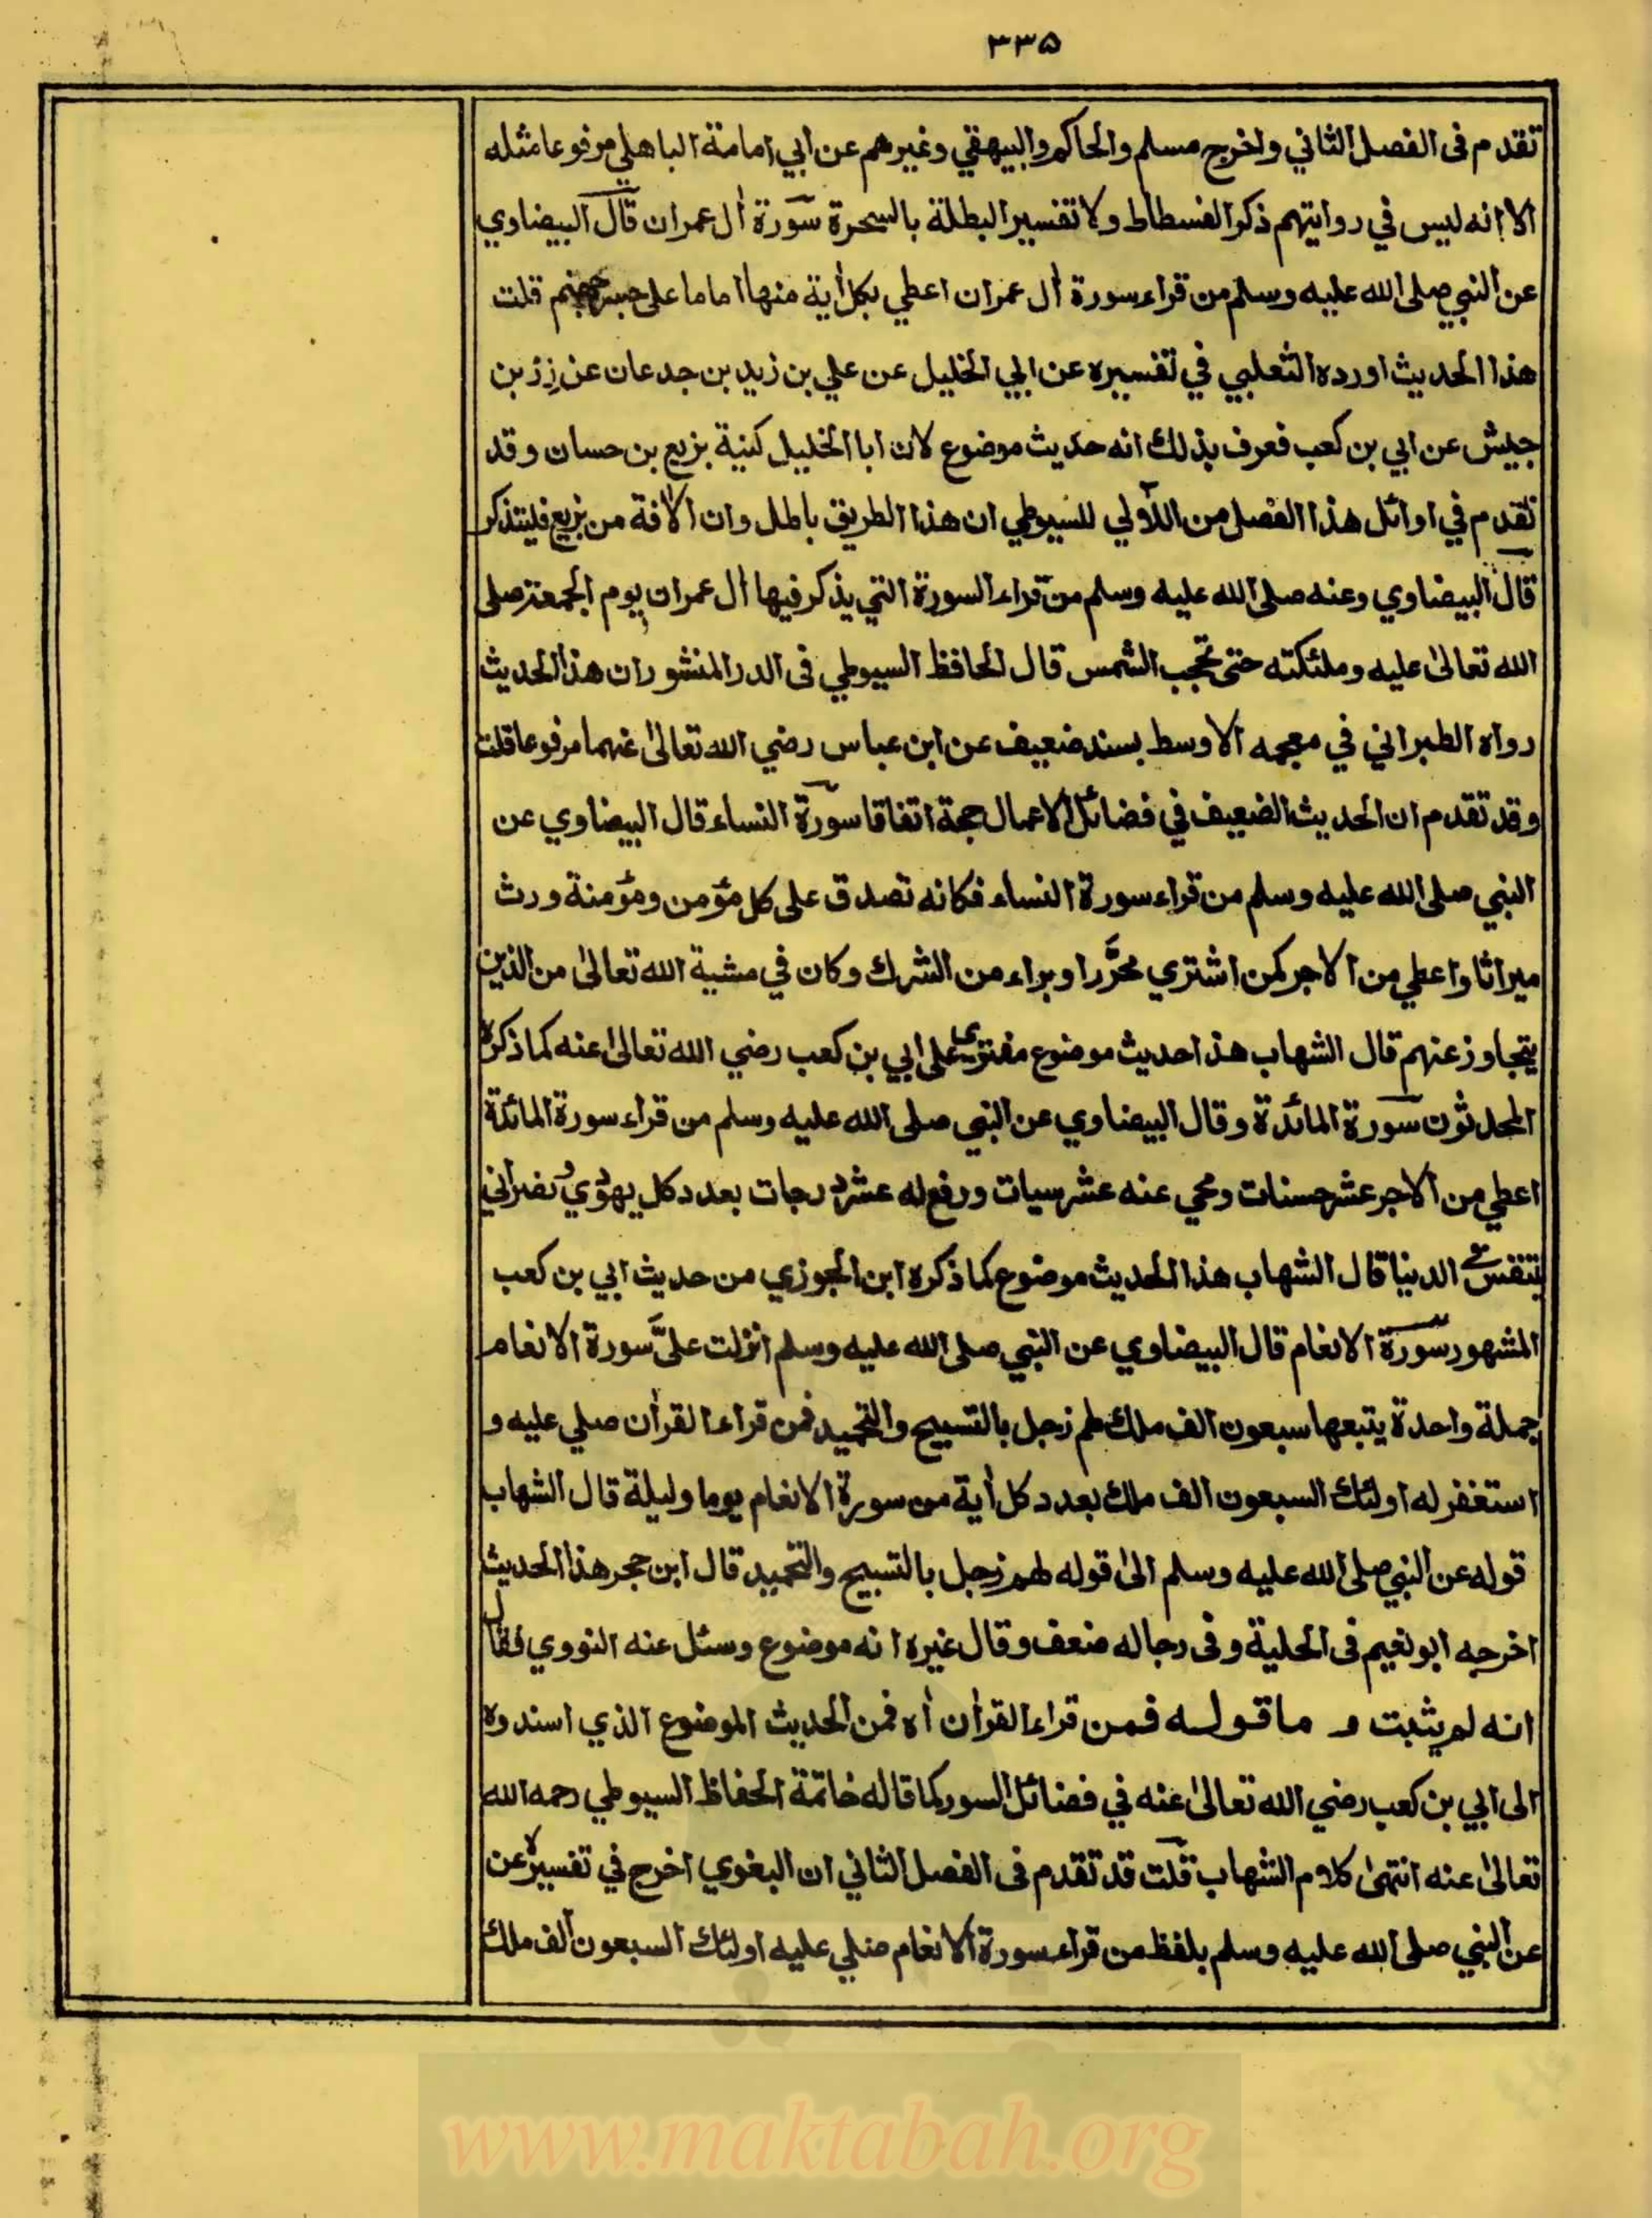 ٣٣۵
تقدم فى الفصل الثاني واخرج مسلم والحاكم والبيهقي وغيرهم عن ابي امامة الباهلي مرفوعا مثله
الا انه ليس في روايتهم ذكر الفسطاط ولا تفسير البطلة بالسحرة سورة اٰل عمران قال البيضاوي
عن النبي صلى الله عليه وسلم من قراء سورة اٰل عمران اعطي بكل اٰية منها اماما على جسر جهنم قلت
هذا الحديث اورده الثعلبي في تفسيره عن ابي الخليل عن علي بن زيد بن جدعان عن زر بن
حبيش عن ابي بن كعب فعرف بذلك انه حديث موضوع لان ابا الخليل كنية بزيع بن حسان وقد
تقدم في اوائل هذا الفصل من اللآولي للسيوطي ان هذا الطريق باطل وان الاٰفة من بزيع فليتذكر
قال البيضاوي وعنه صلى الله عليه وسلم من قراء السورة التي يذكر فيها اٰل عمران يوم الجمعة صلى
الله تعالىٰ عليه وملئكته حتى تحجب الشمس قال الحافظ السيوطي فى الدر المنثور ان هذا الحديث
رواه الطبراني في معجمه الاوسط بسند ضعيف عن ابن عباس رضي الله تعالىٰ عنهما مرفوعا قلت
وقد تقدم ان الحديث الضعيف في فضائل الاعمال حجة اتفاقا سورة النساء قال البيضاوي عن
النبي صلى الله عليه وسلم من قراء سورة النساء فكانه تصدق على كل مؤمن ومؤمنة ورث
ميراثا واعطي من الاجر كمن اشتري محرَّرا وبراء من الشرك وكان في مشية الله تعالىٰ من الذين
يتجاوز عنهم قال الشهاب هذا حديث موضوع مفترى على ابي بن كعب رضي الله تعالىٰ عنه كما ذكره
المحدثون سورة المائدة وقال البيضاوي عن النبي صلى الله عليه وسلم من قراء سورة المائدة
اعطي من الاجر عشر حسنات ومحي عنه عشر سيات ورفع له عشر درجات بعدد كل يهودي ونصراني
يتنفس في الدنيا قال الشهاب هذا الحديث موضوع كما ذكره ابن الجوزي من حديث ابي بن كعب
المشهور سورة الانعام قال البيضاوي عن النبي صلى الله عليه وسلم انزلت علىَّ سورة الانعام
جملة واحدة يتبعها سبعون الف ملك لهم زجل بالتسبيح والتحميد فمن قراء القراٰن صلي عليه و
استغفر له اولئك السبعون الف ملك بعدد كل اٰية من سورة الانعام يوما وليلة قال الشهاب
قوله عن النبي صلى الله عليه وسلم الىٰ قوله لهم زجل بالتسبيح والتحميد قال ابن حجر هذا الحديث
اخرجه ابو نعيم فى الحلية وفى رجاله ضعف وقال غيره انه موضوع وسئل عنه النووي فقال
انه لم يثبت و ما قوله فمن قراء القراٰن اٰه فمن الحديث الموضوع الذي اسندوه
الى ابي بن كعب رضي الله تعالىٰ عنه في فضائل السور كما قاله خاتمة الحفاظ السيوطي رحمه الله
تعالىٰ عنه انتهىٰ كلام الشهاب قلت قد تقدم فى الفصل الثاني ان البغوي اخرج في تفسيره عن
عن النبي صلى الله عليه وسلم بلفظ من قراء سورة الانعام صلي عليه اولئك السبعون الف ملك
www.maktabah.org